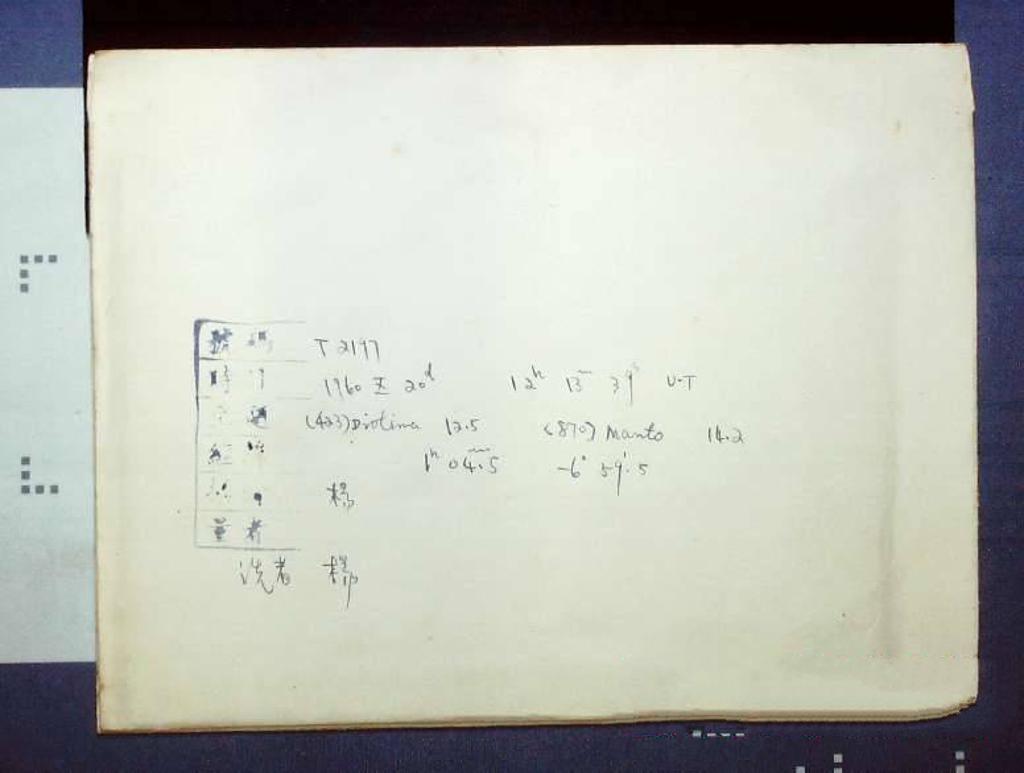 號碼 T 2197
時 1960 X 20d 12h 13m 39s U.T
(423) Diotima 12.5 (870) Manto 14.2
經 1h 04m.5 -6° 59'.5
楊
量者
洗者 楊